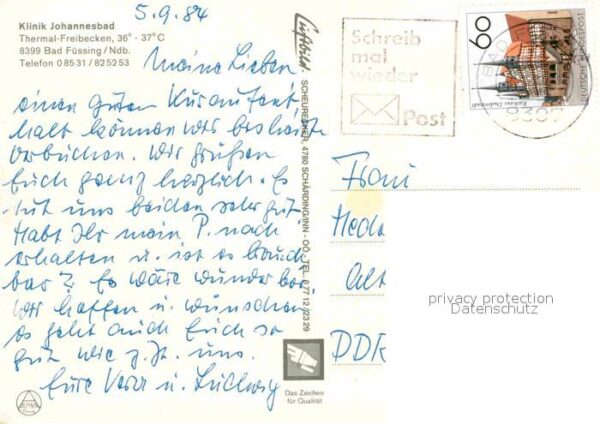 5.9.84
Klinik Johannesbad
Thermal-Freibecken, 36° - 37°C
8399 Bad Füssing / Ndb.
Telefon 0 85 31 / 82 52 53
Meine Lieben
einen guten Kuraufent-
halt können wir bis heute
verbuchen. Wir grüßen
Euch ganz herzlich. Es
tut uns beiden sehr gut
Habt Ihr mein P. nach
erhalten u. ist es brauch
bar? Es wäre wunderbar
wir hoffen u. wünschen
es geht auch Euch so
gut wie z.Zt. uns.
Eure Vera u. Ludwig
Luftbild SCHEURECKER, 4780 SCHÄRDING/INN - OÖ - TEL. 0 77 12 / 23 29
Das Zeichen
für Qualität
Schreib
mal
wieder
Post
60
Rathaus Duderstadt
DEUTSCHE BUNDESPOST
Frau
Alt
DDR
privacy protection
Datenschutz